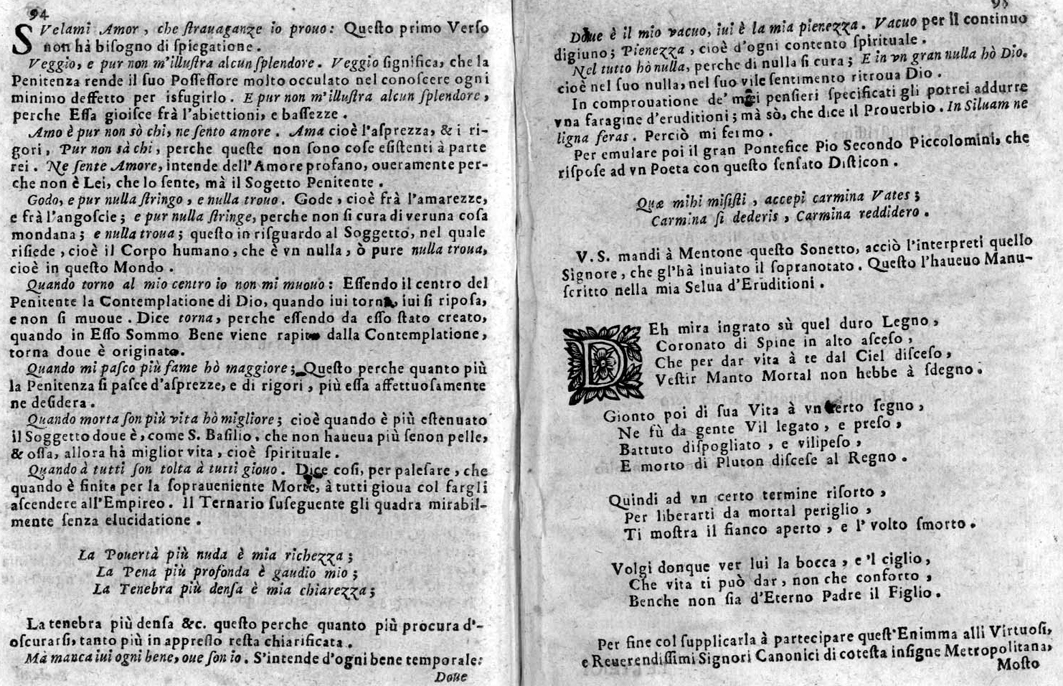 94
SVelami Amor, che ſtrauaganze io prouo: Queſto primo Verſo
non hà biſogno di ſpiegatione.
Veggio, e pur non m'illuſtra alcun ſplendore. Veggio ſignifica, che la
Penitenza rende il ſuo Poſſeſſore molto occulato nel conoſcere ogni
minimo deffetto per isfugirlo. E pur non m'illuſtra alcun ſplendore,
perche Eſſa gioiſce frà l'abiettioni, e baſſezze.
Amo è pur non sò chi, ne ſento amore. Ama cioè l'aſprezza, & i ri-
gori, Pur non sà chi, perche queſte non ſono coſe eſiſtenti à parte
rei. Ne ſente Amore, intende dell'Amore profano, oueramente per-
che non è Lei, che lo ſente, mà il Sogetto Penitente.
Godo, e pur nulla ſtringo, e nulla trouo. Gode, cioè frà l'amarezze,
e frà l'angoſcie; e pur nulla ſtringe, perche non ſi cura di veruna coſa
mondana; e nulla troua; queſto in riſguardo al Soggetto, nel quale
riſiede, cioè il Corpo humano, che è vn nulla, ò pure nulla troua,
cioè in queſto Mondo.
Quando torno al mio centro io non mi muouo: Eſſendo il centro del
Penitente la Contemplatione di Dio, quando iui torna, iui ſi ripoſa,
e non ſi muoue. Dice torna, perche eſſendo da eſſo ſtato creato,
quando in Eſſo Sommo Bene viene rapito dalla Contemplatione,
torna doue è originato.
Quando mi paſco più fame hò maggiore; Queſto perche quanto più
la Penitenza ſi paſce d'aſprezze, e di rigori, più eſſa affettuoſamente
ne deſidera.
Quando morta ſon più vita hò migliore; cioè quando è più eſtenuato
il Soggetto doue è, come S. Baſilio, che non haueua più ſenon pelle,
& oſſa, allora hà miglior vita, cioè ſpirituale.
Quando à tutti ſon tolta à tutti giouo. Dice coſi, per paleſare, che
quando è finita per la ſoprauueniente Morte, à tutti gioua col fargli
aſcendere all'Empireo. Il Ternario ſuſeguente gli quadra mirabil-
mente ſenza elucidatione.
La Pouertà più nuda è mia richezza;
La Pena più profonda è gaudio mio;
La Tenebra più denſa è mia chiarezza;
La tenebra più denſa &c. queſto perche quanto più procura d'-
oſcurarſi, tanto più in appreſſo reſta chiarificata.
Ma manca iui ogni bene, oue ſon io. S'intende d'ogni bene temporale:
Doue
95
Doue è il mio vacuo, iui è la mia pienezza. Vacuo per il continuo
digiuno; Pienezza, cioè d'ogni contento ſpirituale.
Nel tutto hò nulla, perche di nulla ſi cura; E in vn gran nulla hò Dio.
cioè nel ſuo nulla, nel ſuo vile ſentimento ritroua Dio.
In comprouatione de' miei penſieri ſpecificati gli potrei addurre
vna faragine d'eruditioni; mà sò, che dice il Prouerbio. In Siluam ne
ligna feras. Perciò mi fermo.
Per emulare poi il gran Pontefice Pio Secondo Piccolomini, che
riſpoſe ad vn Poeta con queſto ſenſato Diſticon.
Quæ mihi miſiſti, accepi carmina Vates;
Carmina ſi dederis, Carmina reddidero.
V.S. mandi à Mentone queſto Sonetto, acciò l'interpreti quello
Signore, che gl'hà inuiato il ſopranotato. Queſto l'haueuo Manu-
ſcritto nella mia Selua d'Eruditioni.
DEh mira ingrato sù quel duro Legno,
Coronato di Spine in alto aſceſo,
Che per dar vita à te dal Ciel diſceſo,
Veſtir Manto Mortal non hebbe à ſdegno.
Gionto poi di ſua Vita à vn certo ſegno,
Ne fù da gente Vil legato, e preſo,
Battuto diſpogliato, e vilipeſo,
E morto di Pluton diſceſe al Regno.
Quindi ad vn certo termine riſorto,
Per liberarti da mortal periglio,
Ti moſtra il fianco aperto, e l' volto ſmorto.
Volgi donque ver lui la bocca, e 'l ciglio,
Che vita ti può dar, non che conforto,
Benche non ſia d'Eterno Padre il Figlio.
Per fine col ſupplicarla à partecipare queſt'Enimma alli Virtuoſi,
e Reuerendiſſimi Signori Canonici di coteſta inſigne Metropolitana,
Moſto